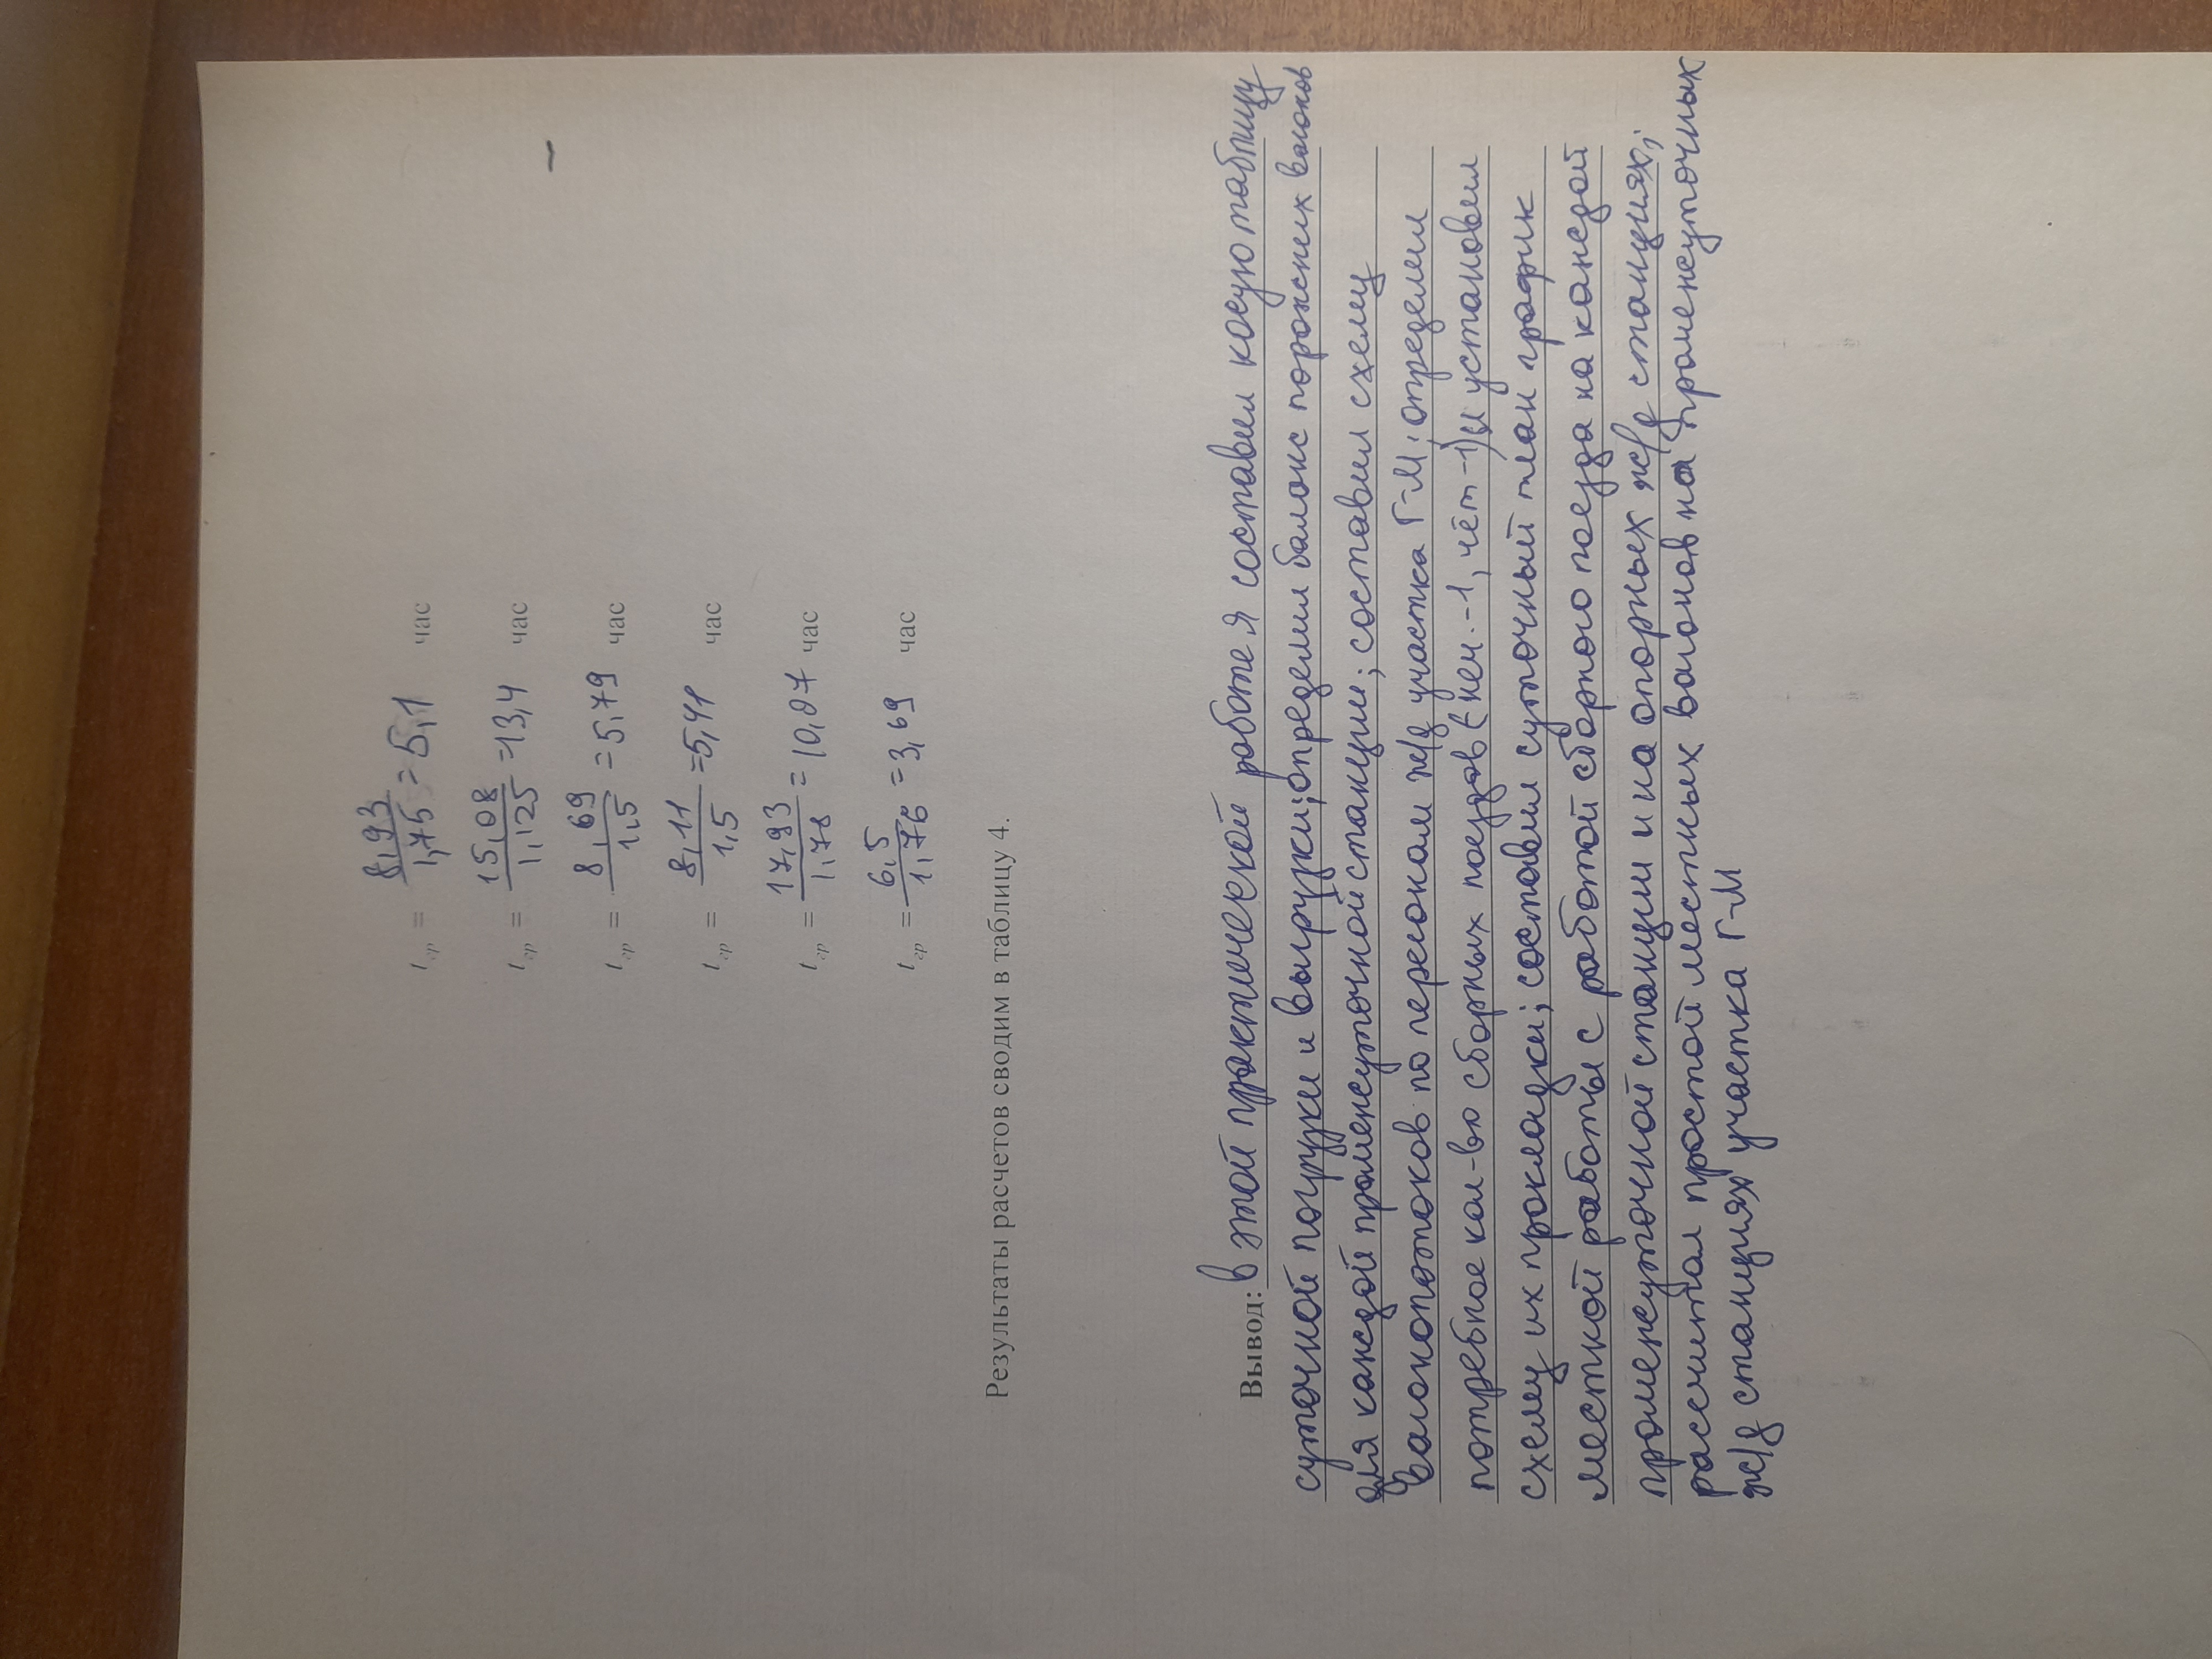 t гр = 8,93 / 1,75 = 5,1 час
t гр = 15,08 / 1,125 = 13,4 час
t гр = 8,69 / 1,5 = 5,79 час
t гр = 8,11 / 1,5 = 5,41 час
t гр = 17,93 / 1,78 = 10,07 час
t гр = 6,5 / 1,76 = 3,69 час
Результаты расчетов сводим в таблицу 4.
Вывод: В этой практической работе я составил косую таблицу
суточной погрузки и выгрузки; определил баланс порожних вагонов
для каждой промежуточной станции; составил схему
вагонопотоков по перегонам ж/д участка Г-М; определил
потребное кол-во сборных поездов (неч.-1, чёт-1) и установил
схему их прокладки; составил суточный план график
местной работы с работой сборного поезда на каждой
промежуточной станции и на опорных ж/д станциях;
рассчитал простой местных вагонов на промежуточных
ж/д станциях участка Г-М